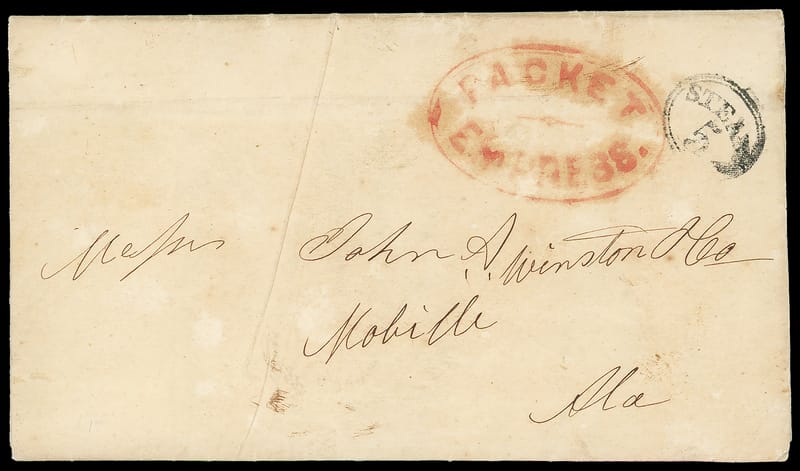 PACKET
EMPRESS.
STEAM
5
Messrs John A. Winston & Co
Mobille
Ala